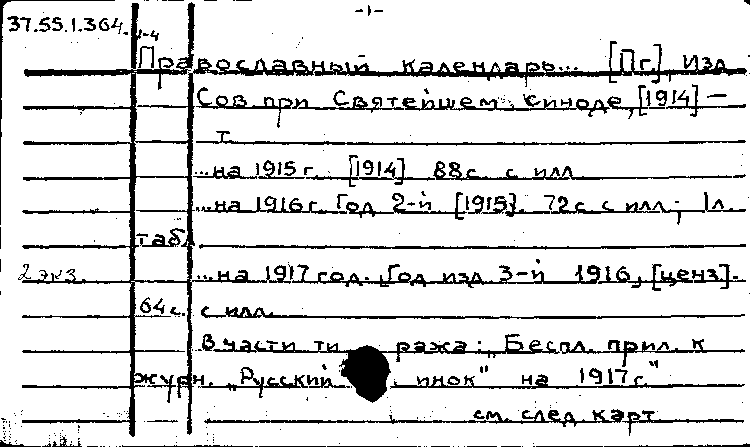 -1-
37.55.1.364. 1-4
Православный календарь... [Пг.], Изд
Сов при Святейшем синоде, [1914] —
т.
...на 1915 г. [1914]. 88 с. с илл
...на 1916 г. Год 2-й [1915]. 72 с. с илл.; 1 л.
табл.
2 экз. ...на 1917 год. Год изд. 3-й 1916, [ценз].
64 с. с илл.
В части ти ража: „Беспл. прил. к
журн. „Русский инок" на 1917 г."
см. след. карт